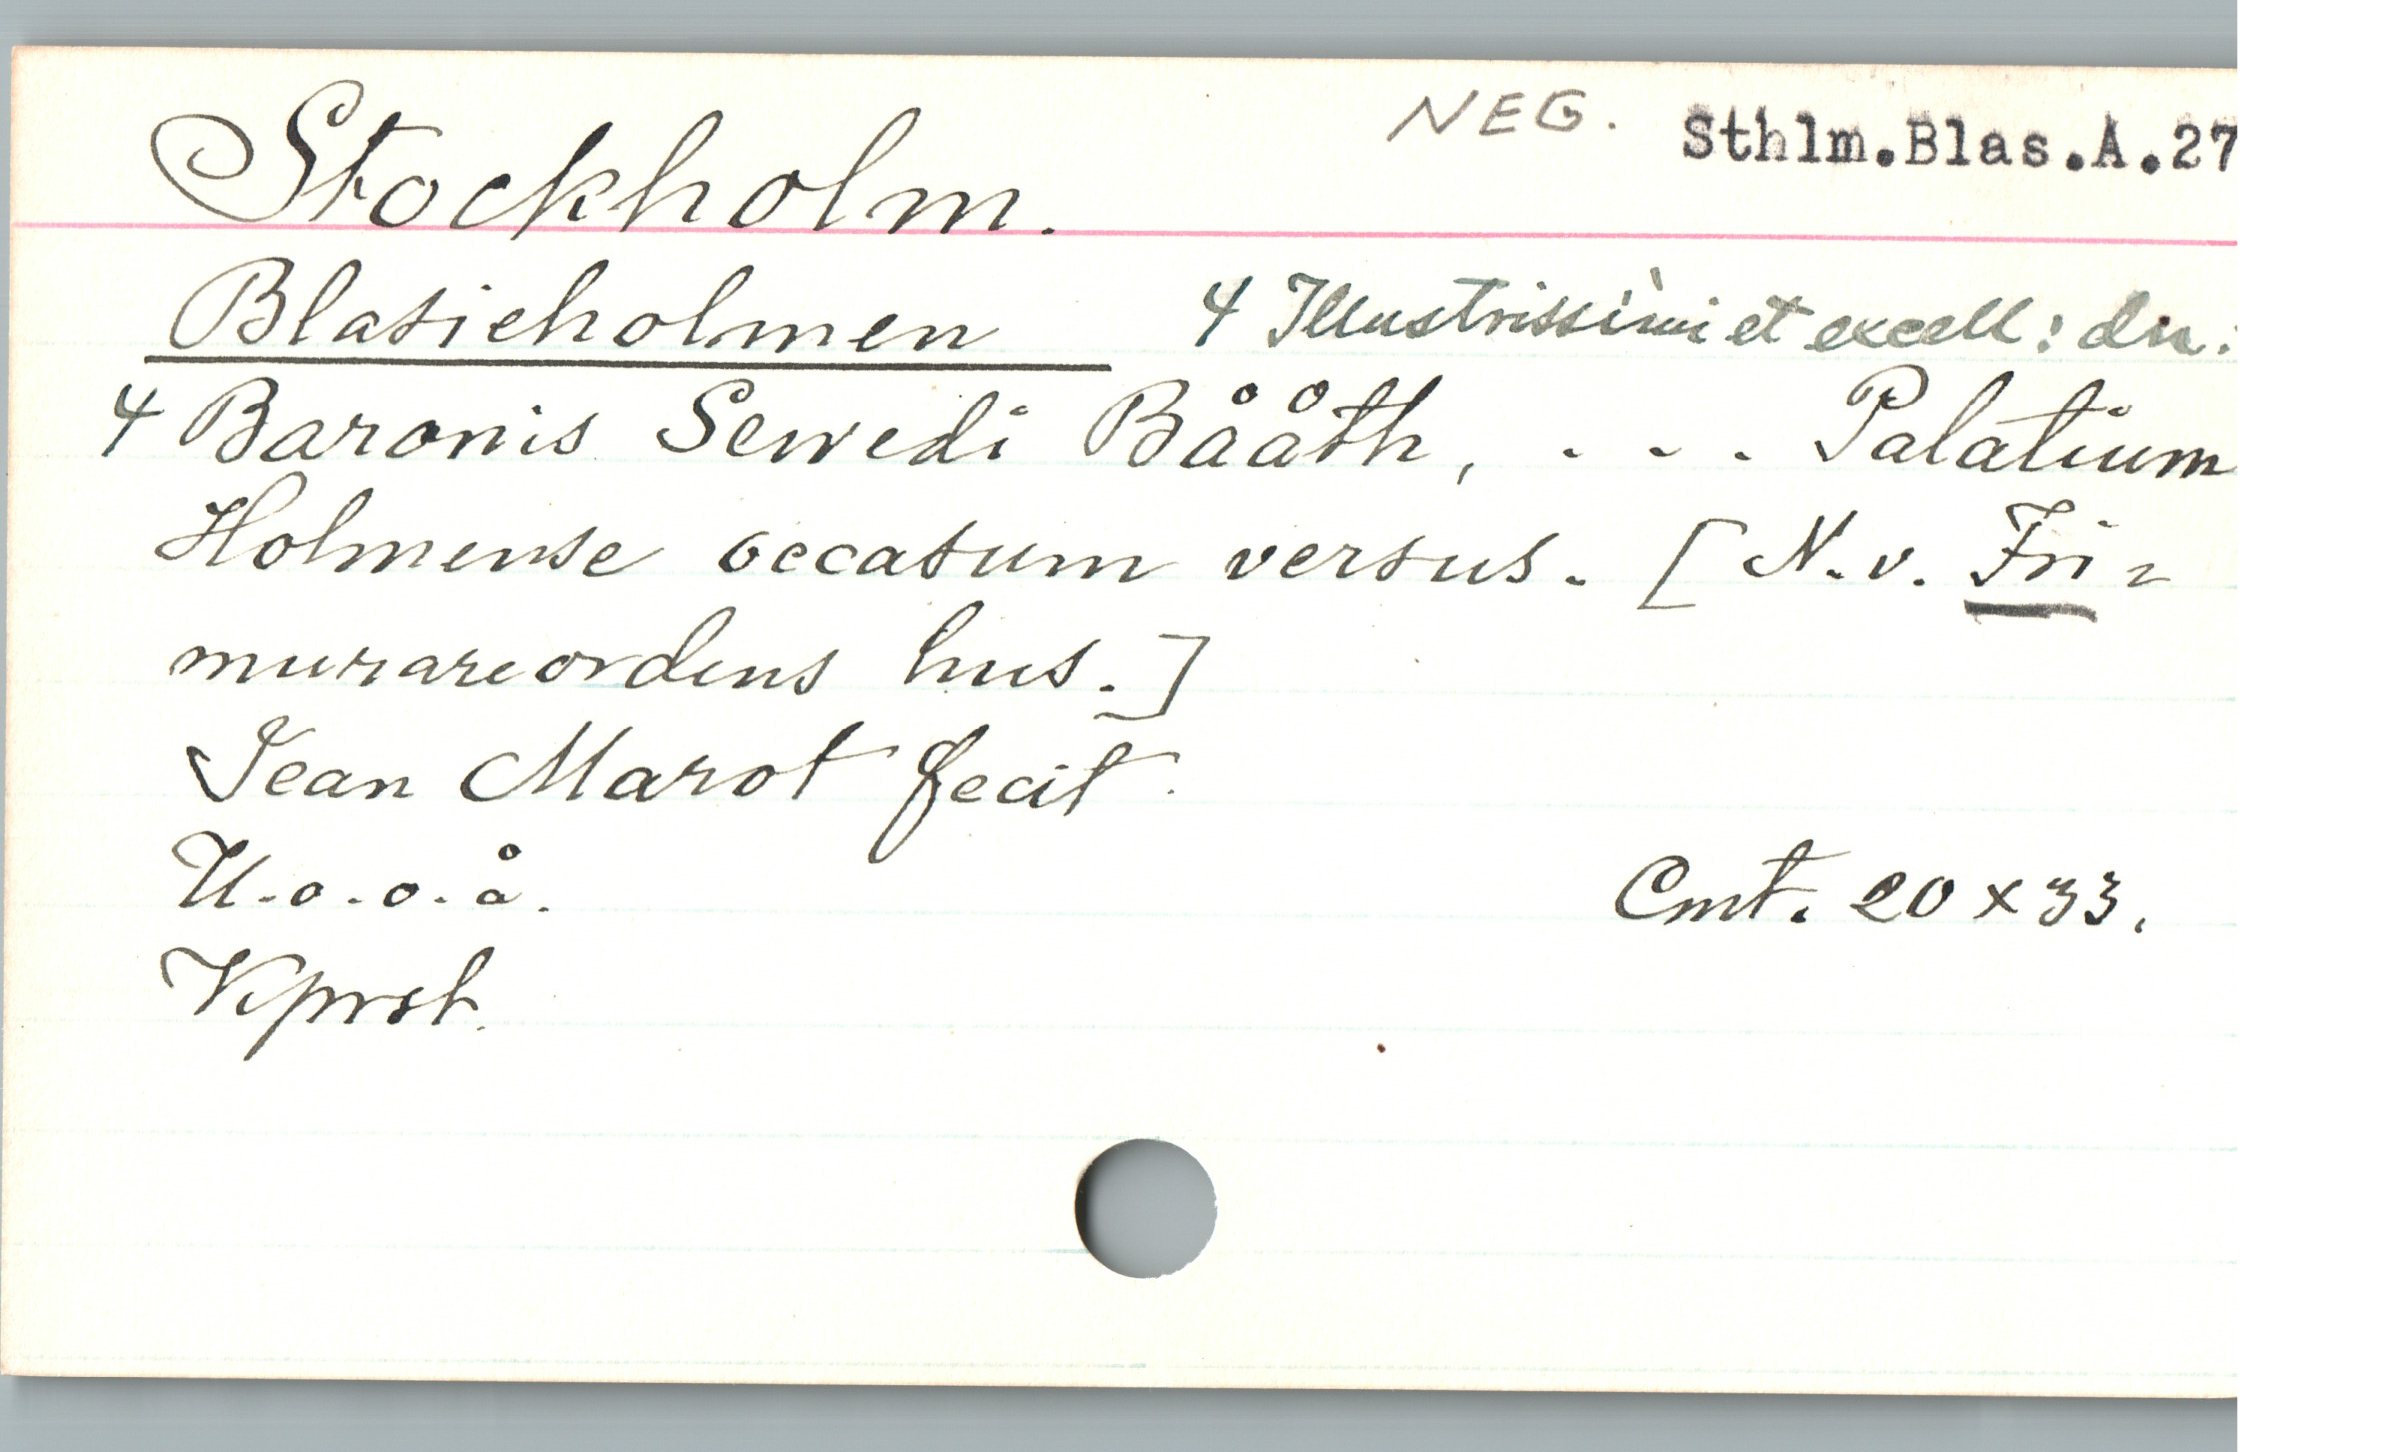 Stockholm. NEG. Sthlm.Blas.A.27
Blasieholmen 4 Illustrissimi et excell: dn:
4 Baronis Sewedi Bååth, . . . Palatium
Holmense occasum versus. [N. v. Fri-
murareordens hus.]
Jean Marot fecit.
U. o. o. å. Cmt. 20 x 33.
Kprst.